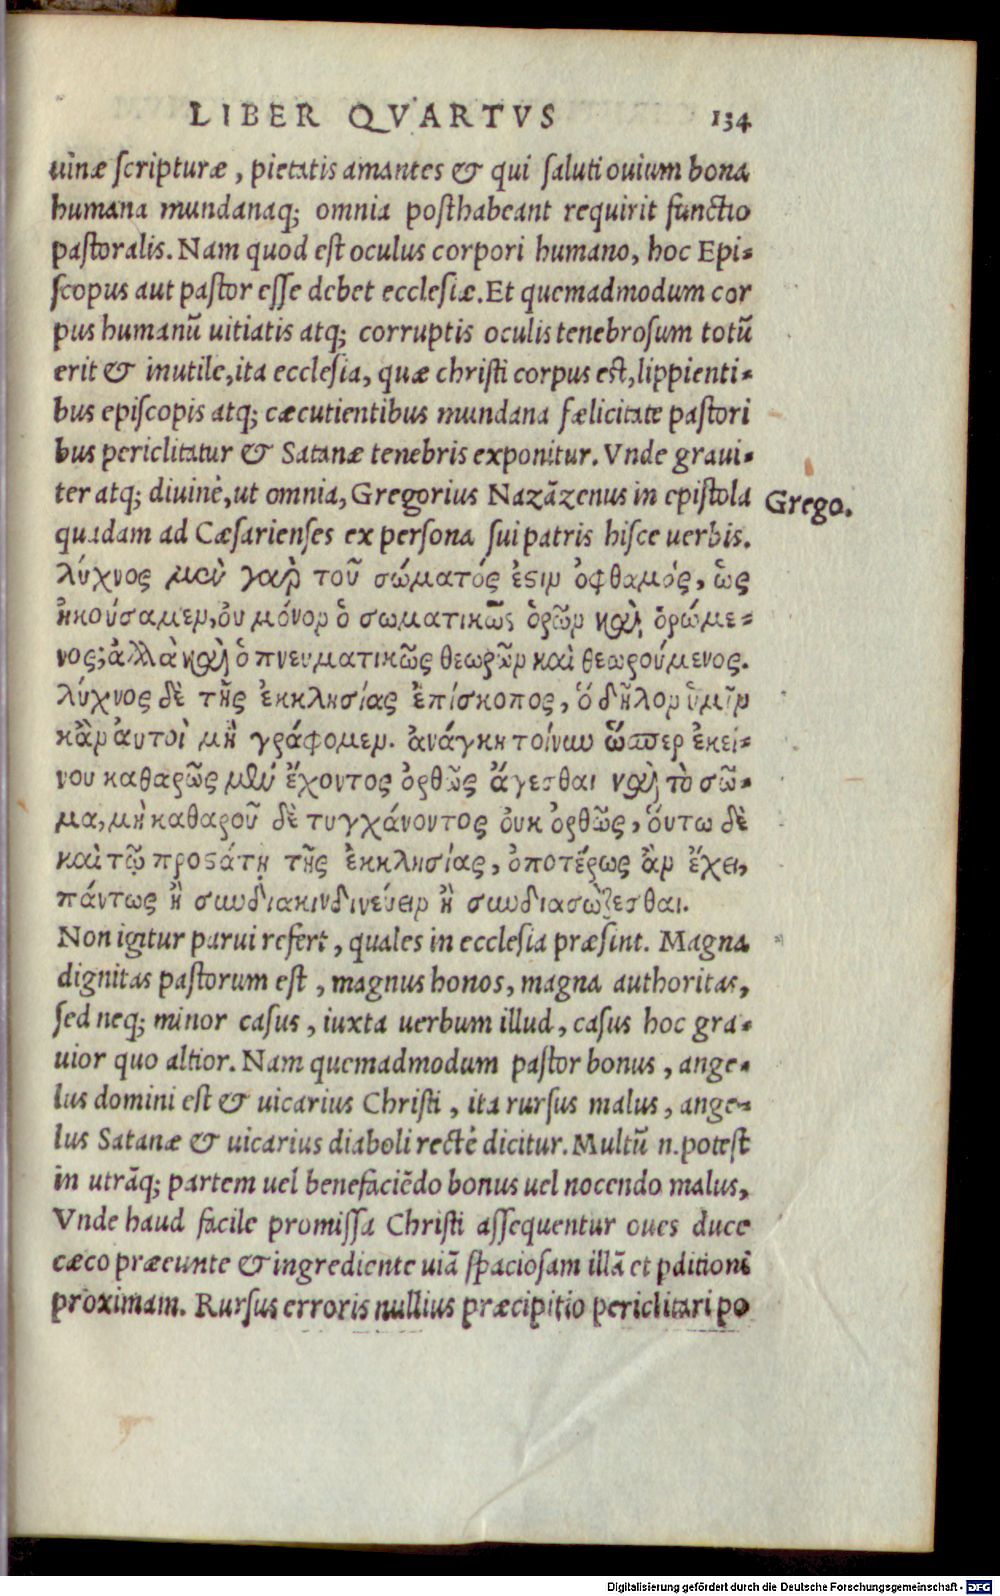 LIBER QVARTVS 134
uinæ scripturæ, pietatis amantes & qui saluti ouium bona
humana mundanaq; omnia posthabeant requirit functio
pastoralis. Nam quod est oculus corpori humano, hoc Epi-
scopus aut pastor esse debet ecclesiæ. Et quemadmodum cor
pus humanũ uitiatis atq; corruptis oculis tenebrosum totũ
erit & inutile, ita ecclesia, quæ christi corpus est, lippienti-
bus episcopis atq; cæcutientibus mundana fælicitate pastori
bus periclitatur & Satanæ tenebris exponitur. Vnde graui-
ter atq; diuinè, ut omnia, Gregorius Nazãzenus in epistola
Grego.
quadam ad Cæsarienses ex persona sui patris hisce uerbis.
λύχνος μὲν γαρ τοῦ σώματός ἐςιν ὀφθαμός, ὡς
ἠκούσαμεν, ὀυ μόνον ὁ σωματικῶς ὁρῶν καὶ ὁρώμε-
νος; ἀλλὰ καὶ ὁ πνευματικῶς θεωρῶν καὶ θεωρούμενος.
λύχνος δὲ τῆς ἐκκλησίας ἐπίσκοπος, ὅ δῆλον ὑμῖν
κἂν ἀυτοὶ μὴ γράφομεν. ἀνάγκη τοίνυν ὥσπερ ἐκεί-
νου καθαρῶς μὲν ἔχοντος ὀρθῶς ἄγεσθαι καὶ τὸ σῶ-
μα, μὴ καθαροῦ δὲ τυγχάνοντος ὀυκ ὀρθῶς, ὅυτω δὲ
καὶ τῷ προςάτῃ τῆς ἐκκλησίας, ὁποτέρως ἂν ἔχει,
πάντως ἢ συνδιακινδινεύειν ἢ συνδιασώζεσθαι.
Non igitur parui refert, quales in ecclesia præsint. Magna
dignitas pastorum est, magnus honos, magna authoritas,
sed neq; minor casus, iuxta uerbum illud, casus hoc gra-
uior quo altior. Nam quemadmodum pastor bonus, ange-
lus domini est & uicarius Christi, ita rursus malus, ange-
lus Satanæ & uicarius diaboli rectè dicitur. Multũ n. potest
in utrãq; partem uel benefaciẽdo bonus uel nocendo malus,
Vnde haud facile promissa Christi assequentur oues duce
cæco præeunte & ingrediente uiã spaciosam illã et pditioni
proximam. Rursus erroris nullius præcipitio periclitari po
Digitalisierung gefördert durch die Deutsche Forschungsgemeinschaft - DFG